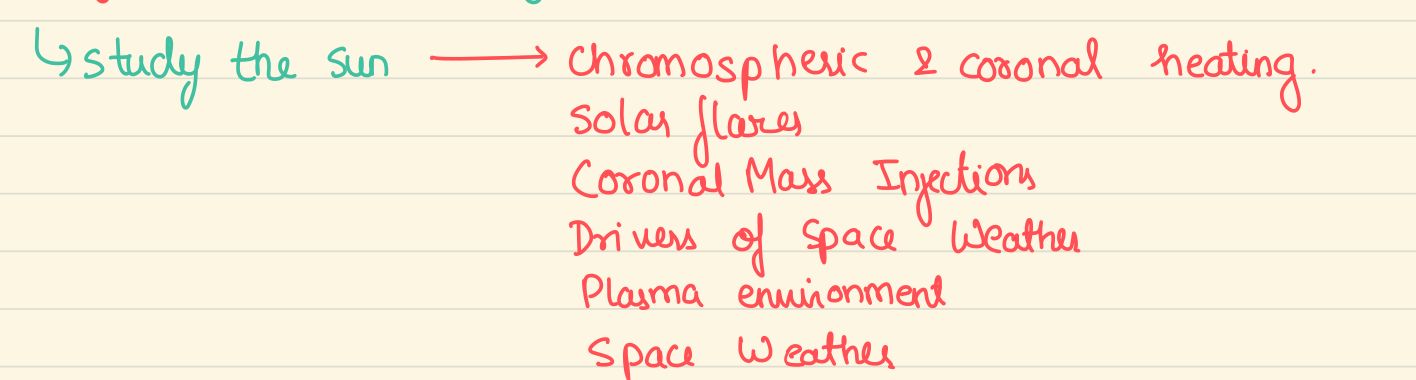 ↳ study the sun → Chromospheric & coronal heating.
Solar flares
Coronal Mass Injections
Drivers of Space Weather
Plasma environment
Space Weather